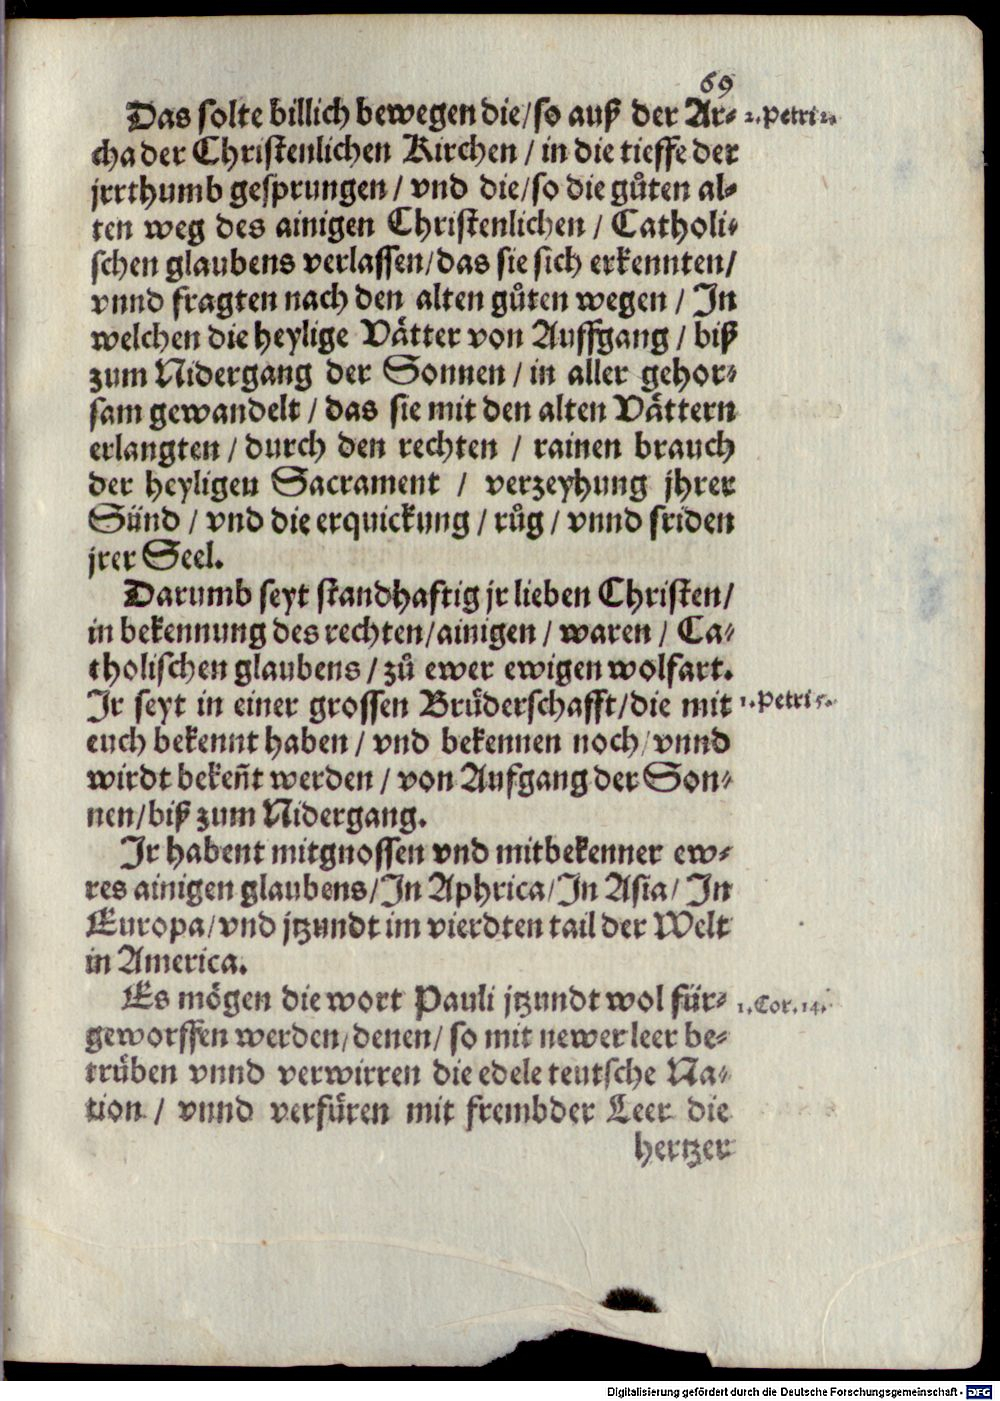 69
Das solte billich bewegen die/so auß der Ar- 2. Petri 2.
cha der Christenlichen Kirchen / in die tieffe der
jrrthumb gesprungen / vnd die/so die gůten al-
ten weg des ainigen Christenlichen / Catholi-
schen glaubens verlassen/das sie sich erkennten/
vnnd fragten nach den alten gůten wegen / In
welchen die heylige Vätter von Auffgang / biß
zum Nidergang der Sonnen / in aller gehor-
sam gewandelt / das sie mit den alten Vättern
erlangten / durch den rechten / rainen brauch
der heyligen Sacrament / verzeyhung jhrer
Sünd / vnd die erquickung / růg / vnnd friden
jrer Seel.
Darumb seyt standhaftig jr lieben Christen/
in bekennung des rechten/ainigen / waren / Ca-
tholischen glaubens / zů ewer ewigen wolfart.
Ir seyt in einer grossen Brüderschafft/die mit 1. Petri 5.
euch bekennt haben / vnd bekennen noch/vnnd
wirdt bekeñt werden / von Aufgang der Son-
nen/biß zum Nidergang.
Ir habent mitgnossen vnd mitbekenner ew-
res ainigen glaubens/In Aphrica/In Asia/ In
Europa/vnd jtzundt im vierdten tail der Welt
in America.
Es mögen die wort Pauli jtzundt wol für- 1. Cor. 14.
geworffen werden/denen/ so mit newer leer be-
trüben vnnd verwirren die edele teutsche Na-
tion / vnnd verfüren mit frembder Leer die
hertzer
Digitalisierung gefördert durch die Deutsche Forschungsgemeinschaft - DFG